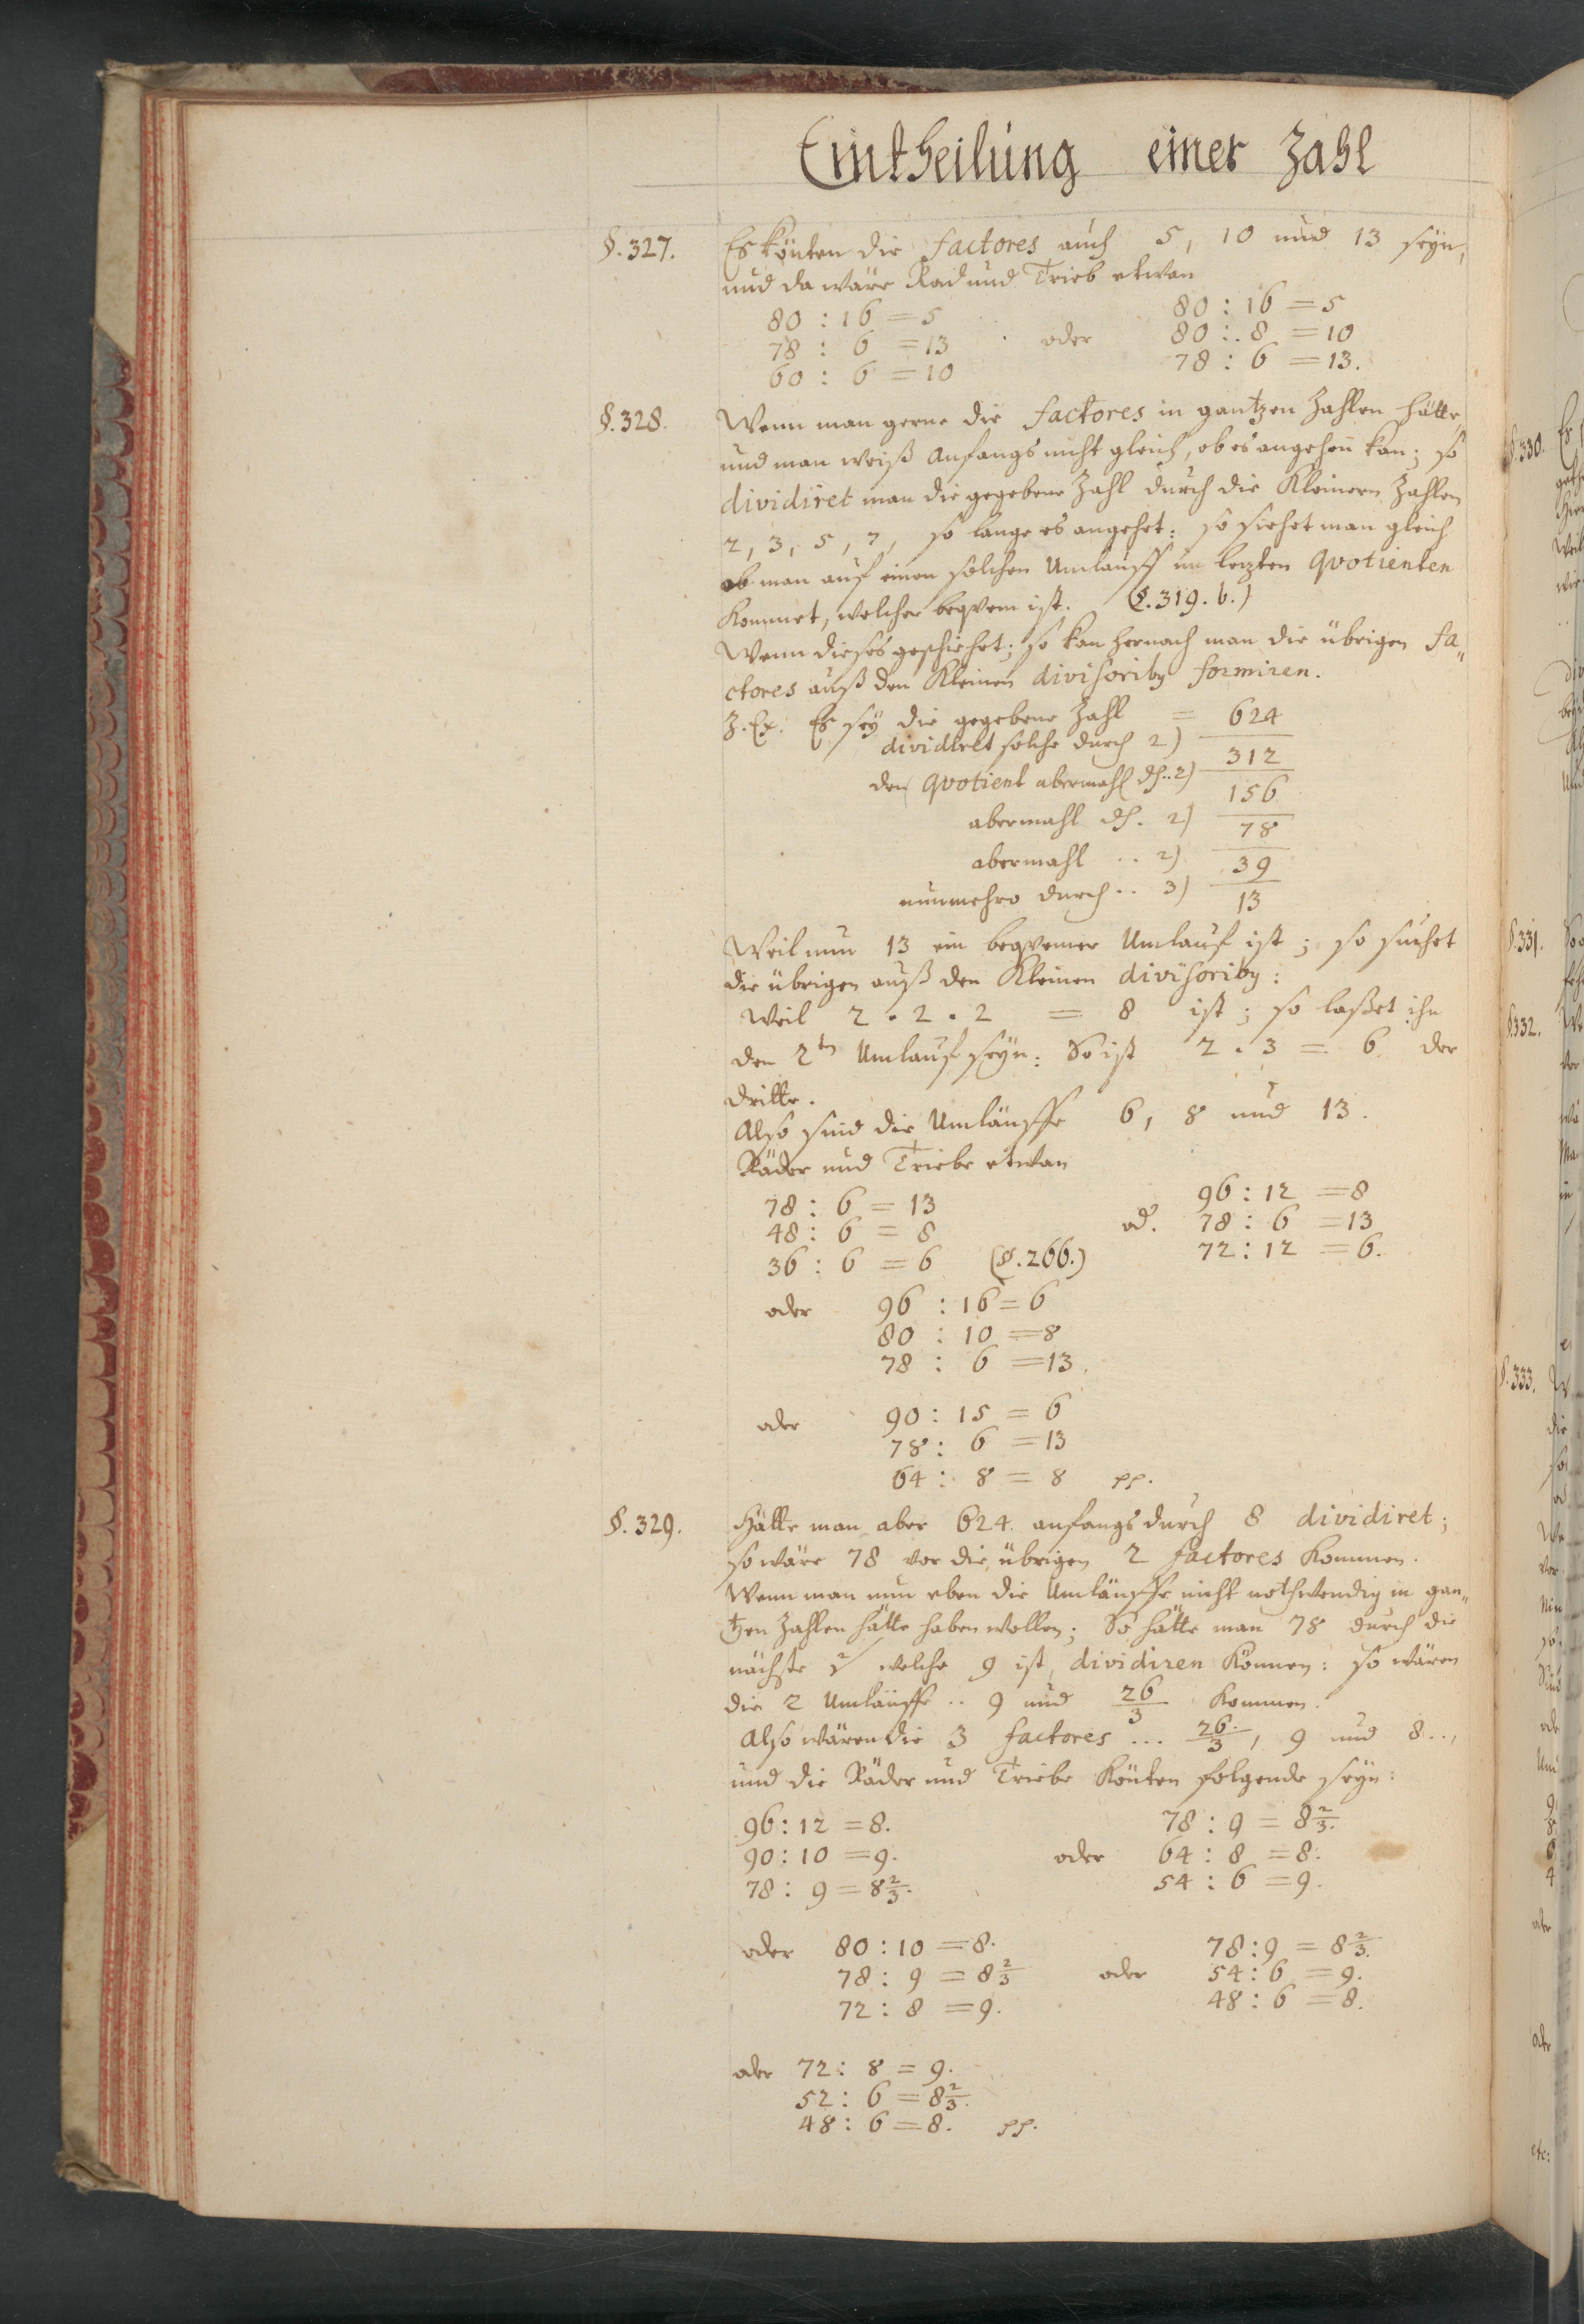 Eintheilung einer Zahl
§.327. Es könten die factores auch 5, 10 und 13 seyn,
und da wäre Rad und Trieb etwan
80 : 16 = 5 80 : 16 = 5
78 : 6 = 13 oder 80 : 8 = 10
60 : 6 = 10 78 : 6 = 13.
§.328. Wenn man gerne die factores in gantzen Zahlen hätte,
und man weiß Anfangs nicht gleich, ob es angehen kan; so
dividiret man die gegebene Zahl durch die Kleinern Zahlen
2, 3, 5, 7, so lange es angehet: so siehet man gleich
ob man auf einen solchen Umlauff im lezten Qvotienten
kommet, welcher beqvem ist. (§.319.b.)
Wenn dieses geschiehet; so kan hernach man die übrigen fa„
ctores auß den Kleinen divisoriby formiren.
Z.Ex. Es sey die gegebene Zahl = 624
dividiret solche durch 2) 312
den Qvotient abermahl dh. 2) 156
abermahl dh. 2) 78
abermahl .. 2) 39
nunmehro durch .. 3) 13
Weil nun 13 ein beqvemer Umlauf ist; so suchet
die übrigen auß den Kleinen divisoriby:
Weil 2 . 2 . 2 = 8 ist; so laßet ihn
den 2tn Umlauf seyn: So ist 2 . 3 = 6 der
dritte.
Also sind die Umläuffe 6, 8 und 13.
Räder und Triebe etwan
78 : 6 = 13 96 : 12 = 8
48 : 6 = 8 od. 78 : 6 = 13
36 : 6 = 6 (§.266.) 72 : 12 = 6.
oder 96 : 16 = 6
80 : 10 = 8
78 : 6 = 13.
oder 90 : 15 = 6
78 : 6 = 13
64 : 8 = 8 pp.
§.329. Hätte man aber 624 anfangs durch 8 dividiret;
so wäre 78 vor die übrigen 2 factores kommen.
Wenn man nun eben die Umläuffe nicht nothwendig in gan„
tzen Zahlen hätte haben wollen; So hätte man 78 durch die
nächste welche 9 ist, dividiren können: so wären
die 2 Umläuffe .. 9 und 26/3 kommen.
Also wären die 3 factores ... 26/3, 9 und 8..,
und die Räder und Triebe könten folgende seyn:
96 : 12 = 8. 78 : 9 = 8 2/3.
90 : 10 = 9. oder 64 : 8 = 8.
78 : 9 = 8 2/3. 54 : 6 = 9.
oder 80 : 10 = 8. 78 : 9 = 8 2/3.
78 : 9 = 8 2/3 oder 54 : 6 = 9.
72 : 8 = 9. 48 : 6 = 8.
oder 72 : 8 = 9.
52 : 6 = 8 2/3.
48 : 6 = 8. pp.
§.330.
§.331.
§.332.
§.333.